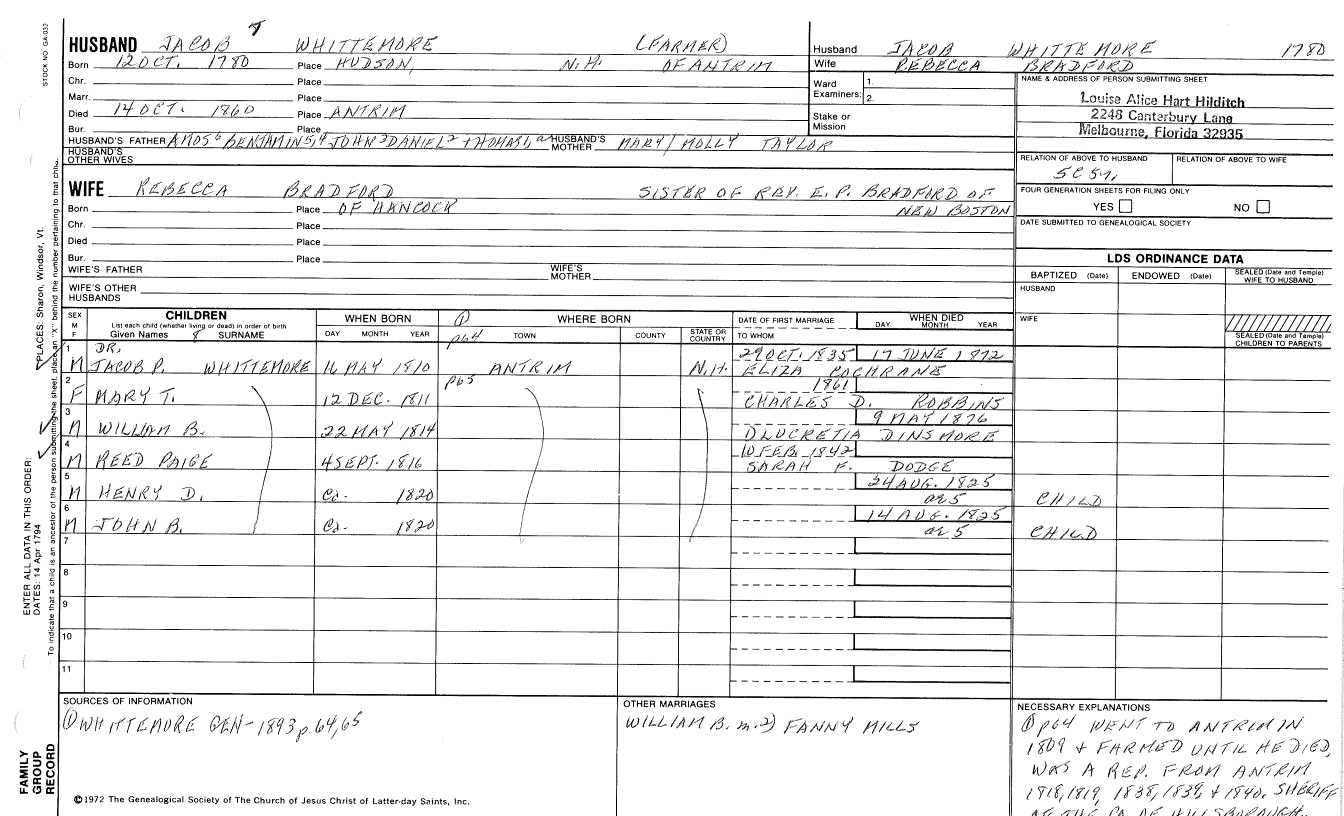 STOCK NO GA-033
HUSBAND JACOB 7 WHITTEMORE (FARMER)
Born 12 OCT. 1780 Place HUDSON, N.H. OF ANTRIM
Chr. Place
Marr. Place
Died 14 OCT. 1860 Place ANTRIM
Bur. Place
HUSBAND'S FATHER AMOS6 BENJAMIN5,4 JOHN3 DANIEL2 + THOMAS1, HUSBAND'S MOTHER MARY/MOLLY TAYLOR
HUSBAND'S OTHER WIVES
Husband JACOB WHITTEMORE 1780
Wife REBECCA BRADFORD
Ward Examiners: 1. 2.
Stake or Mission
NAME & ADDRESS OF PERSON SUBMITTING SHEET
Louise Alice Hart Hilditch
2248 Canterbury Lane
Melbourne, Florida 32935
RELATION OF ABOVE TO HUSBAND RELATION OF ABOVE TO WIFE
5C 5r,
FOUR GENERATION SHEETS FOR FILING ONLY
YES NO
DATE SUBMITTED TO GENEALOGICAL SOCIETY
WIFE REBECCA BRADFORD SISTER OF REV. E. P. BRADFORD OF
Born Place OF HANCOCK NEW BOSTON
Chr. Place
Died Place
Bur. Place
WIFE'S FATHER WIFE'S MOTHER
WIFE'S OTHER HUSBANDS
LDS ORDINANCE DATA
BAPTIZED (Date) ENDOWED (Date) SEALED (Date and Temple) WIFE TO HUSBAND
HUSBAND
WIFE
SEALED (Date and Temple) CHILDREN TO PARENTS
SEX M F
CHILDREN
List each child (whether living or dead) in order of birth
Given Names 8 SURNAME
WHEN BORN
DAY MONTH YEAR
① WHERE BORN
p64 TOWN COUNTY STATE OR COUNTRY
DATE OF FIRST MARRIAGE
TO WHOM
WHEN DIED
DAY MONTH YEAR
1 DR. 29 OCT. 1835 17 JUNE 1872
M JACOB P. WHITTEMORE 16 MAY 1810 ANTRIM N.H. ELIZA COCHRANE
2 p65 1861
F MARY T. 12 DEC. 1811 CHARLES D. ROBBINS
3 9 MAY 1876
M WILLIAM B. 22 MAY 1814 DLUCRETIA DINSMORE
4 10 FEB. 1842
M REED PAIGE 4 SEPT. 1816 SARAH F. DODGE
5 24 AUG. 1825
M HENRY D. Ca. 1820 ae 5 CHILD
6 14 AUG. 1825
M JOHN B. Ca. 1820 ae 5 CHILD
7
8
9
10
11
SOURCES OF INFORMATION
① WHITTEMORE GEN- 1893 p 64,65
OTHER MARRIAGES
WILLIAM B. m. 2) FANNY MILLS
NECESSARY EXPLANATIONS
① p64 WENT TO ANTRIM IN
1809 + FARMED UNTIL HE DIED,
WAS A REP. FROM ANTRIM
1818, 1819, 1838, 1839, + 1840. SHERIFF
OF THE CO. OF HILLSBOROUGH.
©1972 The Genealogical Society of The Church of Jesus Christ of Latter-day Saints, Inc.
ENTER ALL DATA IN THIS ORDER:
DATES: 14 Apr 1794
PLACES: Sharon, Windsor, Vt.
To indicate that a child is an ancestor of the person submitting the sheet, place an "X" behind the number pertaining to that child.
FAMILY
GROUP
RECORD